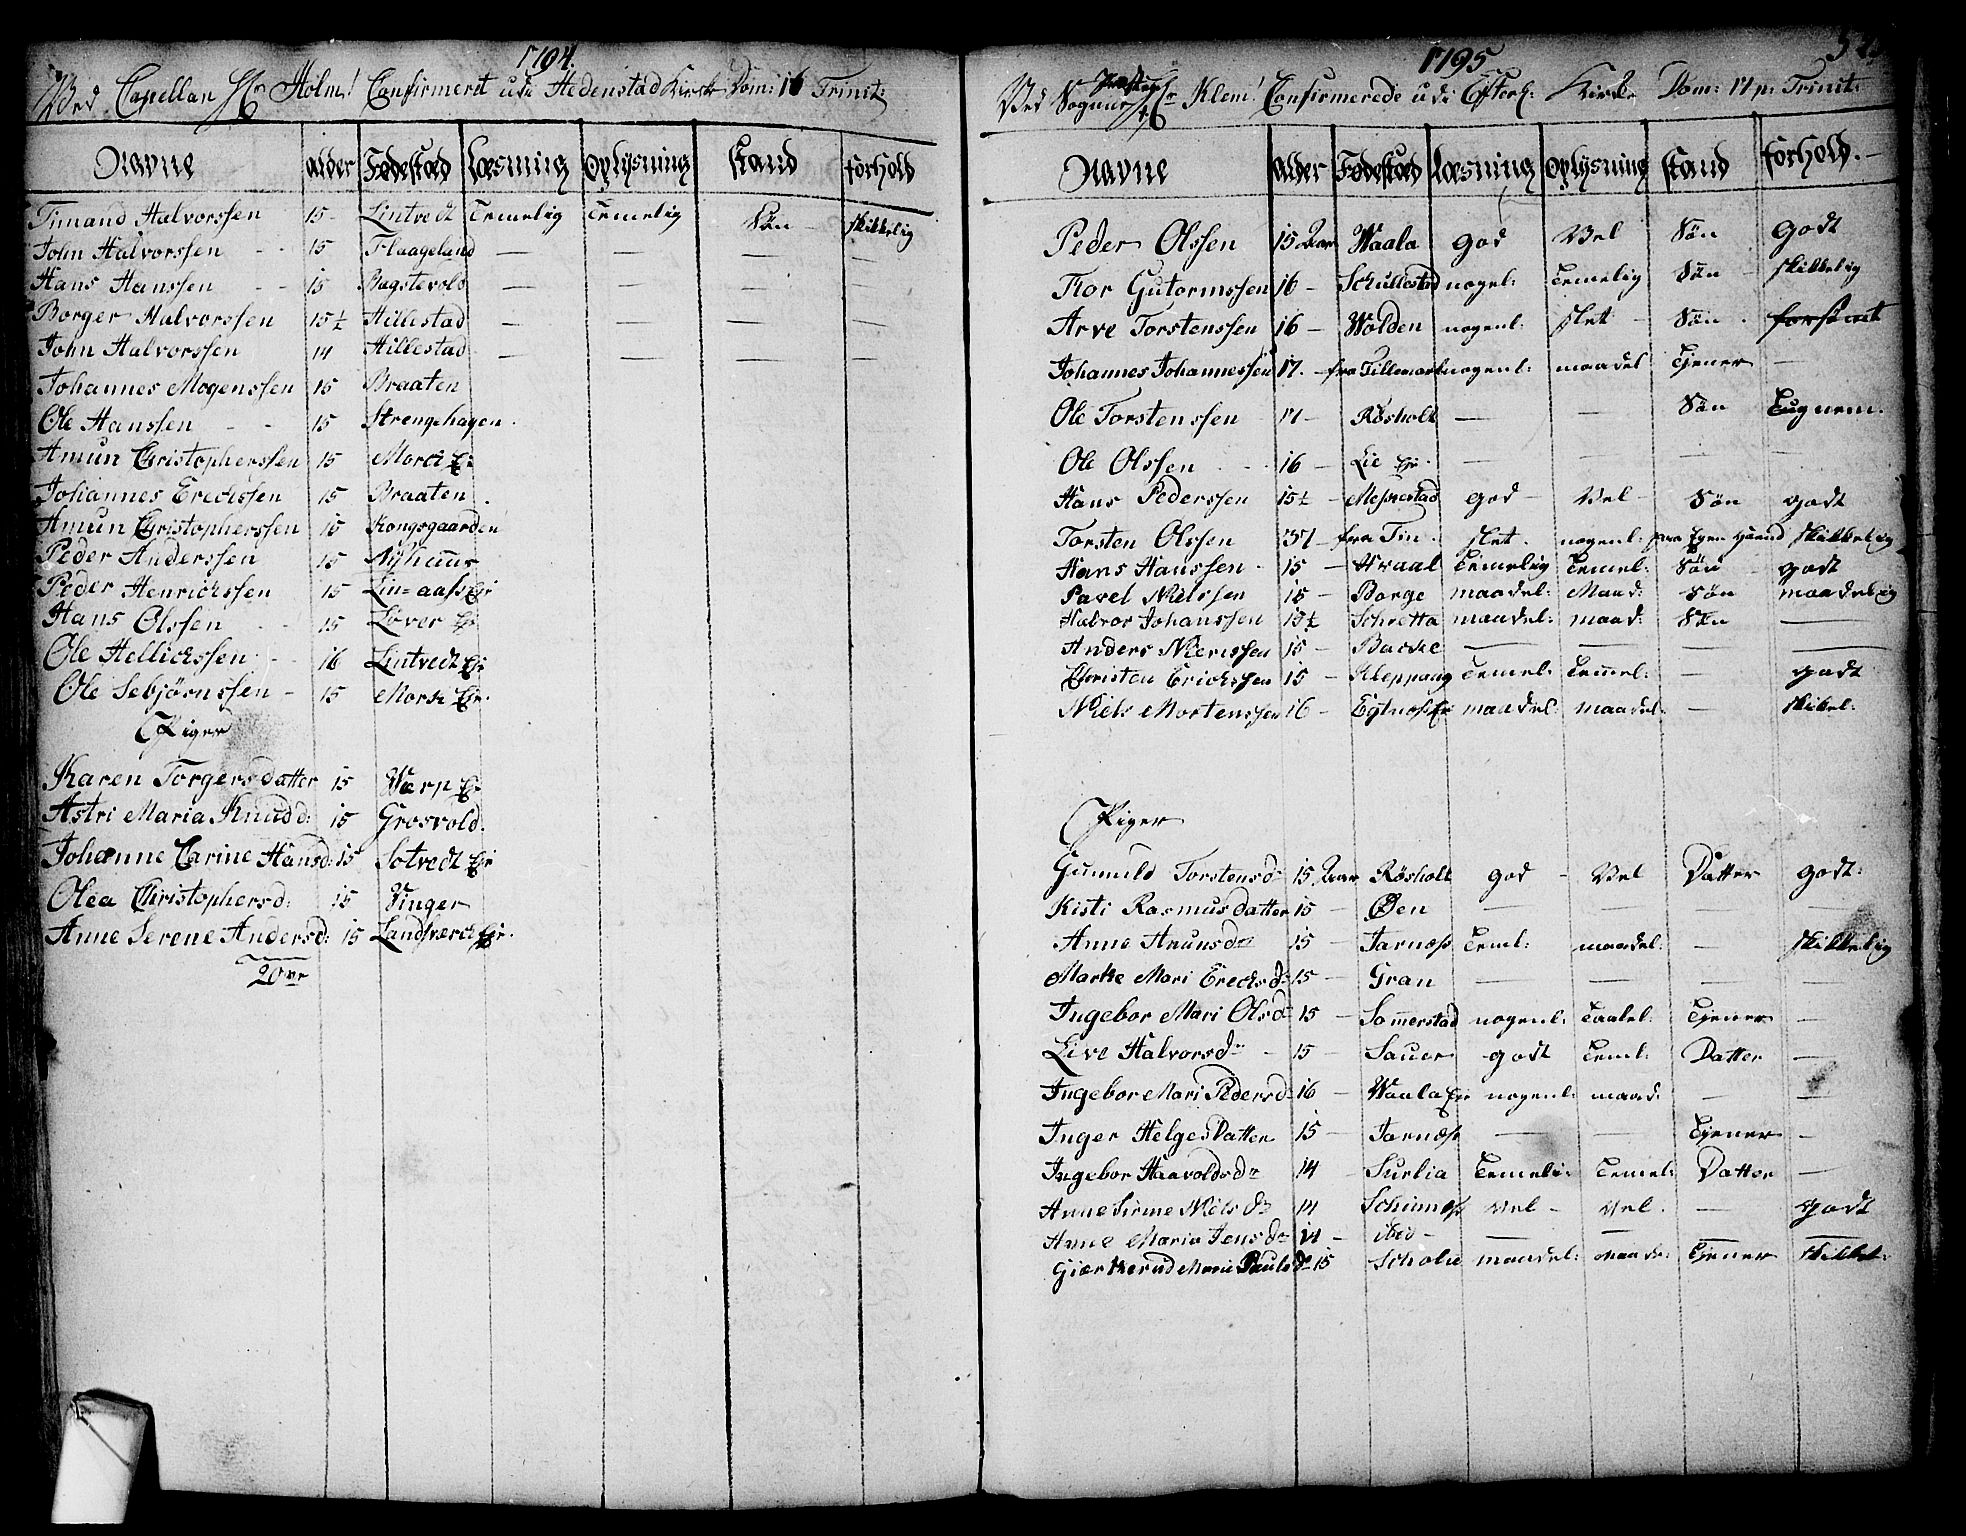 1794.
Ved Capellan Hr Holm! Confirmeret udi Hedenstad Kirke Dom: 16 Trinit:
Navne alder Fødestæd Læsning Oplysning Stand forhold
Tinand Halvorssen 15- Lintvedt Temelig Temelig Søn - skikkelig
John Halvorssen - - 15 Flaageland — — — —
Hans Hanssen - - 15 Bagstevold — — — —
Borger Halvorssen 15½ Hillestad — — — —
John Halvorssen 14 Hillestad — — — —
Johannes Mogenssen 15 Braaten
Ole Hanssen - - 15 Strengehagen.
Amun Christopherssen 15 Morck Ejr
Johannes Erichssen 15 Braaten.
Amun Christopherssen 15 Kongsgaarden
Peder Anderssen 15 Nyhuus
Peder Henrichssen 15 Lin=aass Ejr
Hans Olssen - - 15 Løver Ejr
Ole Hellichssen - - 16 Lintvedt Ejr
Ole Sebjørnssen - 15 Mork Ejr.
Piger
Karen Torgersdatter 15 Værp Ejr
Astri Maria Knudd: 15 Grosvold.
Johanne Carine Hansd: 15 Sotvedt Ejr
Olea Christophersd: 15 Vinger
Anne Serene Andersd: 15 Landsværck Ejr.
20ve
1795
Ved Sogne Præsten Hr Klem! Confirmerede udi Efterl: Kirke Dom: 17 p: Trinit:
Navne alder Fødestæd Læsning Oplysning Stand forhold.
Peder Olssen 15 Aar Waala god Vel Søn godt
Tor Gutormssen 16 - Schullestad nogel: Temelig Søn skikkelig
Arve Torstenssen 16 - Wolden nogenl: slet - Søn.
Johannes Johannessen 17. - fra Tillemark nogenl: maadel Tjener —
Ole Torstenssen 17 - Røsholt — — Søn Tugnem.
Ole Olssen - - - 16 - Lie Ejr. — — — —
Hans Pederssen 15½ - Messestad god - Vel - Søn godt
Torsten Olssen 37 - fra Tin. slet. nogenl: paa Egen Haand skikkelig
Hans Hanssen - 15 - Hvaal Temelig Temel: Søn godt
Pavel Nielssen 15 - Borge maadel: Maad: Søn maadelig
Halvor Johanssen 15½ Schretta maadel: maad: Søn —
Anders Nierssen 15 - Backe — — — —
Christen Erichssen 15 - Kleppang Temel: Temel: — godt
Niels Mortenssen 16 - Egtnes Ejr maadel: maadel: — skikel:
Piger
Gunnild Torstensdr 15 Aar Røsholt god - Vel Datter godt:
Kisti Rasmusdatter 15 - Øen — — — —
Anne Amunsdr 15 - Jarnæss Teml: maadel: — skikkelig
Marte Mari Erichsdr 15 - Gran — — — —
Ingebor Mari Olsdr 15 - Somerstad nogenl: Taalel: Tjener —
Live Halvorsdr - 15 - Sauer godt Teml: Datter —
Ingebor Mari Pedersd: 16 - Waala Ejr nogenl: maad: — —
Inger Helges Datter 15 - Jarnæss — — Tjener -
Ingebor Haavoldsdr 14 - Surlia Temeli: Temel: Datter —
Anne Sirine Nielsdr 14 Schimess vel - vel. — godt
Anne Maria Jensdr 14 - ibid - — — — —
Giærtkerud Marie Paulsdr 15 Scholie maadel: Maade: Tjener skikkel: